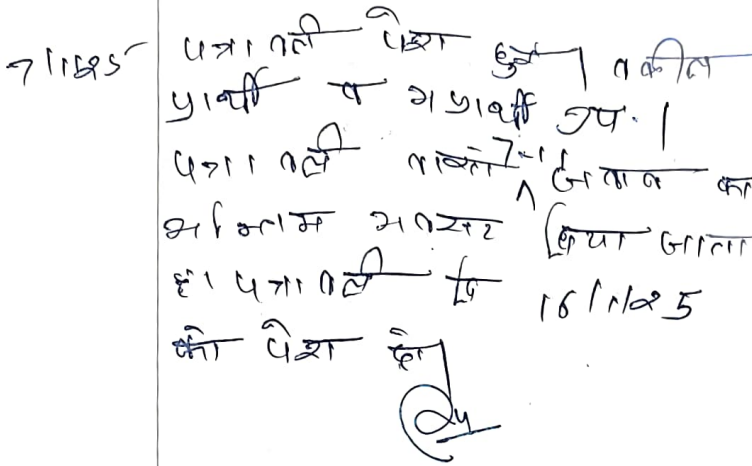 7/1/25
पत्रावली पेश हुई। वकील
प्रार्थी व अप्रार्थी उप.।
पत्रावली वास्ते 7-11 जवाब का
अन्तिम अवसर दिया जाता
है। पत्रावली दि 16/1/25
को पेश हो।